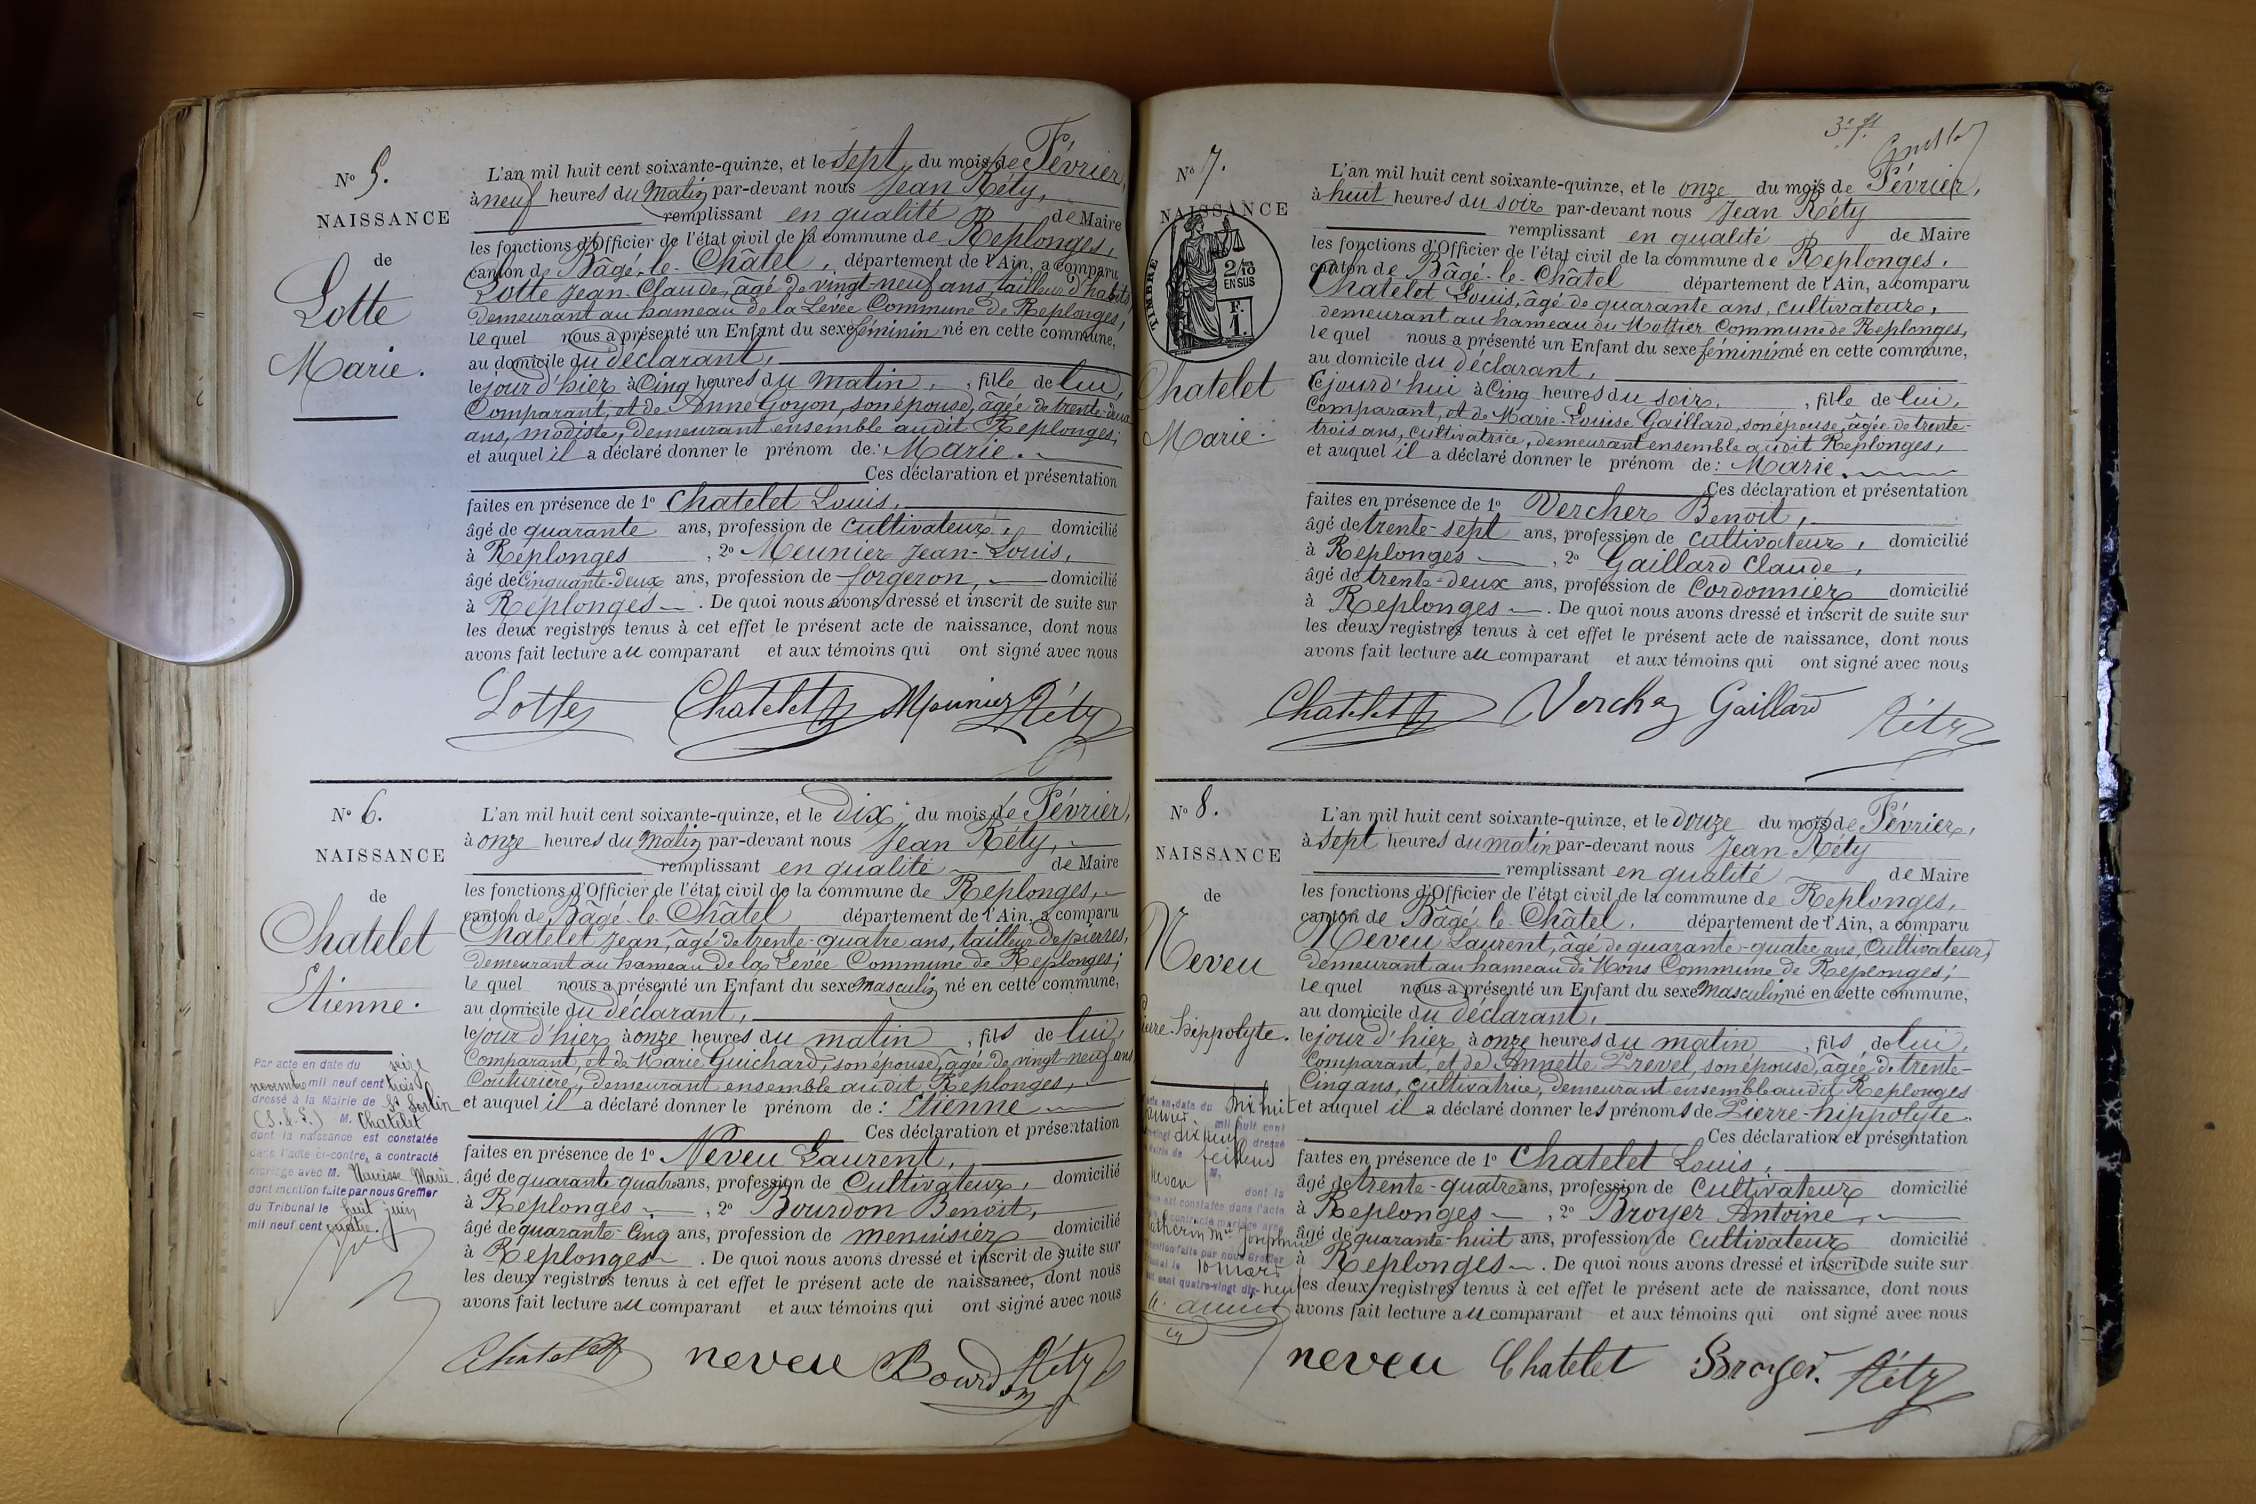 N° 5.
NAISSANCE
de
Lotte
Marie.
L'an mil huit cent soixante-quinze, et le sept du mois de Février,
à neuf heures du matin par-devant nous Jean Réty,
remplissant en qualité de Maire
les fonctions d'Officier de l'état civil de la commune de Replonges,
canton de Bâgé-le-Châtel, département de l'Ain, a comparu
Lotte Jean-Claude, âgé de vingt-neuf ans, tailleur d'habits,
demeurant au hameau de la Levée Commune de Replonges,
lequel nous a présenté un Enfant du sexe féminin né en cette commune,
au domicile du déclarant,
le jour d'hier à cinq heures du matin, fille de lui,
Comparant, et de Anne Goyon, son épouse, âgée de trente-deux
ans, modiste, demeurant ensemble audit Replonges;
et auquel il a déclaré donner le prénom de: Marie.
Ces déclaration et présentation
faites en présence de 1° Chatelet Louis,
âgé de quarante ans, profession de cultivateur, domicilié
à Replonges, 2° Meunier Jean-Louis,
âgé de cinquante-deux ans, profession de forgeron, domicilié
à Replonges. De quoi nous avons dressé et inscrit de suite sur
les deux registres tenus à cet effet le présent acte de naissance, dont nous
avons fait lecture au comparant et aux témoins qui ont signé avec nous
Lotte Chatelet Meunier Réty
N° 6.
NAISSANCE
de
Chatelet
Etienne.
Par acte en date du seize
novembre mil neuf cent trois
dressé à la Mairie de St Sorlin
(S.&L.) M. Chatelet
dont la naissance est constatée
dans l'acte ci-contre, a contracté
mariage avec M. Narcisse Marie
dont mention faite par nous Greffier
du Tribunal le huit juin
mil neuf cent quatre.
L'an mil huit cent soixante-quinze, et le dix du mois de Février,
à onze heures du matin par-devant nous Jean Réty,
remplissant en qualité de Maire
les fonctions d'Officier de l'état civil de la commune de Replonges,
canton de Bâgé-le-Châtel département de l'Ain, a comparu
Chatelet Jean, âgé de trente-quatre ans, tailleur de pierres,
demeurant au hameau de la Levée Commune de Replonges;
lequel nous a présenté un Enfant du sexe masculin né en cette commune,
au domicile du déclarant,
le jour d'hier à onze heures du matin, fils de lui,
Comparant, et de Marie Guichard, son épouse, âgée de vingt-neuf ans
Couturière, demeurant ensemble audit Replonges,
et auquel il a déclaré donner le prénom de: Etienne
Ces déclaration et présentation
faites en présence de 1° Neveu Laurent,
âgé de quarante quatre ans, profession de Cultivateur, domicilié
à Replonges, 2° Bourdon Benoit,
âgé de quarante-cinq ans, profession de menuisier domicilié
à Replonges. De quoi nous avons dressé et inscrit de suite sur
les deux registres tenus à cet effet le présent acte de naissance, dont nous
avons fait lecture au comparant et aux témoins qui ont signé avec nous
Chatelet neveu Bourdon Réty
3e ft
N° 7.
NAISSANCE
TIMBRE
2/10
EN SUS
F.
1.
Chatelet
Marie.
L'an mil huit cent soixante-quinze, et le onze du mois de Février,
à huit heures du soir par-devant nous Jean Réty
remplissant en qualité de Maire
les fonctions d'Officier de l'état civil de la commune de Replonges,
canton de Bâgé-le-Châtel département de l'Ain, a comparu
Chatelet Louis, âgé de quarante ans, cultivateur,
demeurant au hameau du Mottier Commune de Replonges,
lequel nous a présenté un Enfant du sexe féminin né en cette commune,
au domicile du déclarant,
Cejourd'hui à cinq heures du soir, fille de lui,
Comparant, et de Marie-Louise Gaillard, son épouse, âgée de trente-
trois ans, cultivatrice, demeurant ensemble audit Replonges,
et auquel il a déclaré donner le prénom de: Marie.
Ces déclaration et présentation
faites en présence de 1° Vercher Benoit,
âgé de trente-sept ans, profession de cultivateur, domicilié
à Replonges, 2° Gaillard Claude,
âgé de trente-deux ans, profession de Cordonnier domicilié
à Replonges. De quoi nous avons dressé et inscrit de suite sur
les deux registres tenus à cet effet le présent acte de naissance, dont nous
avons fait lecture au comparant et aux témoins qui ont signé avec nous
Chatelet Vercher Gaillard Réty
N° 8.
NAISSANCE
de
Neveu
Pierre-hippolyte.
acte en date du dix huit
janvier mil huit cent
quatre-vingt dix neuf dressé
M.
dont la
naissance est constatée dans l'acte
a contracté mariage avec
Joséphine
mention faite par nous Greffier
10 mars
mil huit cent quatre-vingt dix-neuf
L'an mil huit cent soixante-quinze, et le douze du mois de Février,
à sept heures du matin par-devant nous Jean Réty
remplissant en qualité de Maire
les fonctions d'Officier de l'état civil de la commune de Replonges,
canton de Bâgé le Châtel, département de l'Ain, a comparu
Neveu Laurent, âgé de quarante-quatre ans, Cultivateur,
demeurant au hameau de Mons Commune de Replonges;
lequel nous a présenté un Enfant du sexe masculin né en cette commune,
au domicile du déclarant,
le jour d'hier à onze heures du matin, fils de lui,
Comparant, et de Annette Prevel, son épouse, âgée de trente-
cinq ans, cultivatrice, demeurant ensemble audit Replonges
et auquel il a déclaré donner les prénoms de Pierre-hippolyte.
Ces déclaration et présentation
faites en présence de 1° Chatelet Louis,
âgé de trente-quatre ans, profession de cultivateur domicilié
à Replonges, 2° Broyer Antoine,
âgé de quarante-huit ans, profession de cultivateur domicilié
à Replonges. De quoi nous avons dressé et inscrit de suite sur
les deux registres tenus à cet effet le présent acte de naissance, dont nous
avons fait lecture au comparant et aux témoins qui ont signé avec nous
neveu Chatelet Broyer. Réty